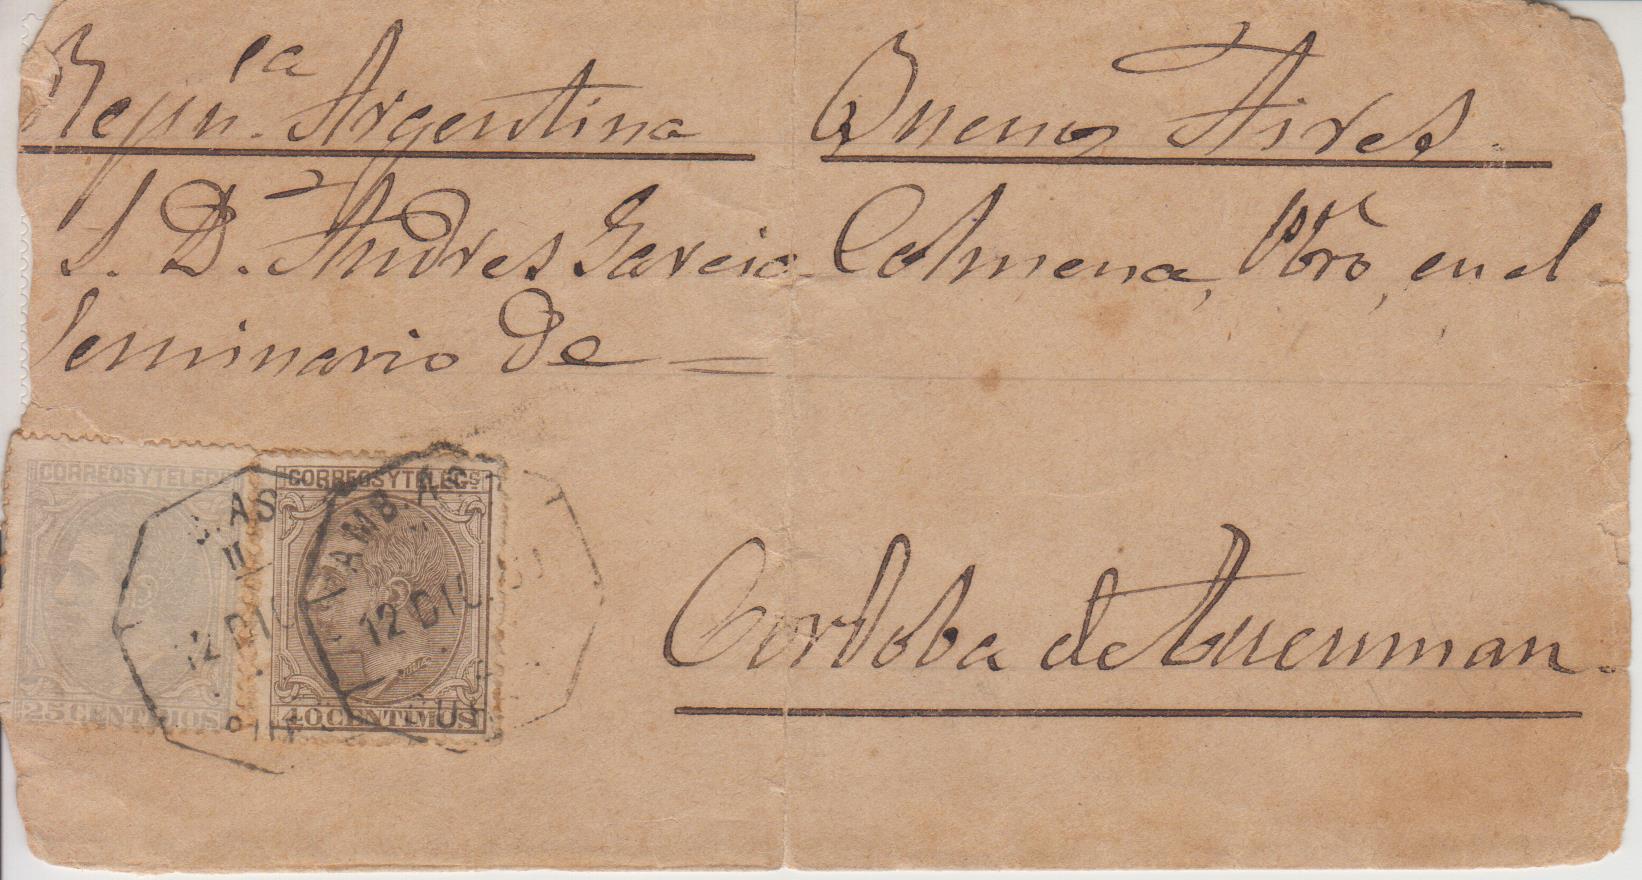 Repn.ca Argentina Buenos Aires.
S. D. Andres Garcia Colmena, Pbro, en el
Seminario de =
Cordoba de Tucuman.
CORREOS Y TELEGs
CORREOS Y TELEGs
25 CENTIMOS
40 CENTIMOS
AMB. AS
12 DIC
12 DIC